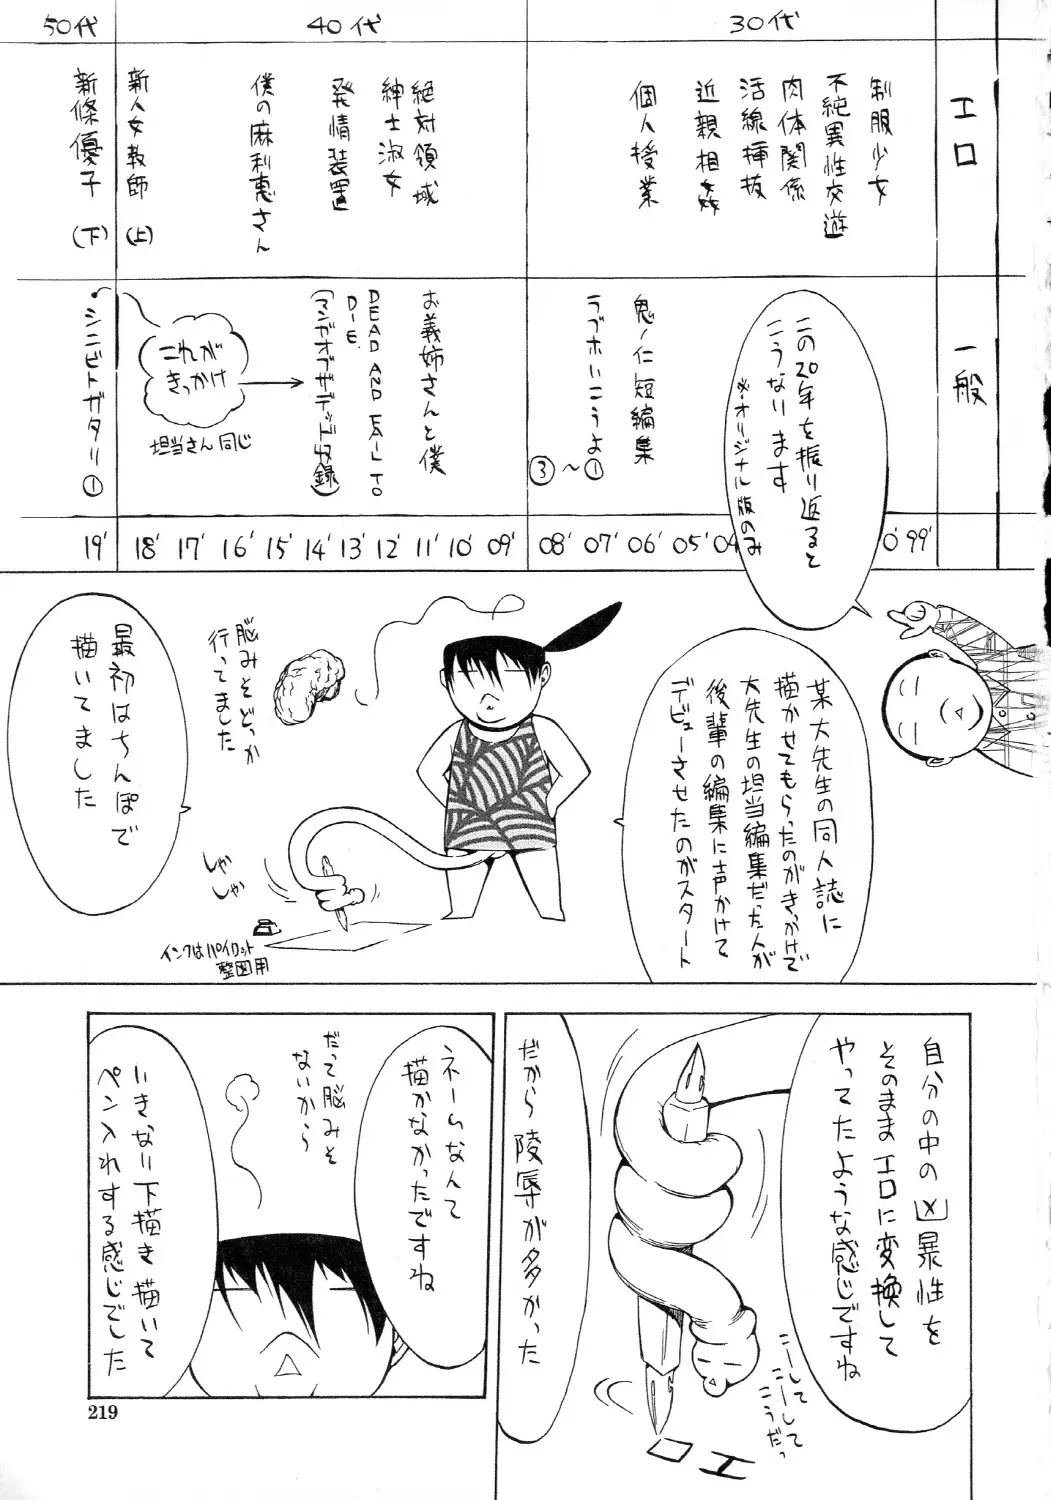 50代
40代
30代
エロ
制服少女
不純異性交遊
肉体関係
活線挿抜
近親相姦
個人授業
絶対領域
紳士淑女
発情装置
僕の麻利恵さん
新人女教師(上)
新條優子(下)
一般
鬼ノ仁短編集
ラブホいこうよ①
~
③
お義姉さんと僕
DEAD AND FAIL TO
DIE.
(マンガオブザデッド収録)
これが
きっかけ
担当さん同じ
シニビトガタリ①
この20年を振り返ると
こうなります
※オリジナル版のみ
19'
18'
17'
16'
15'
14'
13'
12'
11'
10'
09'
08'
07'
06'
05'
04
0'
99'
某大先生の同人誌に
描かせてもらったのがきっかけで
大先生の担当編集だった人が
後輩の編集に声かけて
デビューさせたのがスタート
脳みそどっか
行ってました
最初はちんぽで
描いてました
しゃ
しゃ
インクはパイロット
製図用
自分の中の凶暴性を
そのままエロに変換して
やってたような感じですね
こーして
こーして
こうだっ
エロ
だから陵辱が多かった
ネームなんて
描かなかったですね
だって脳みそ
ないから
いきなり下描き描いて
ペン入れする感じでした
219